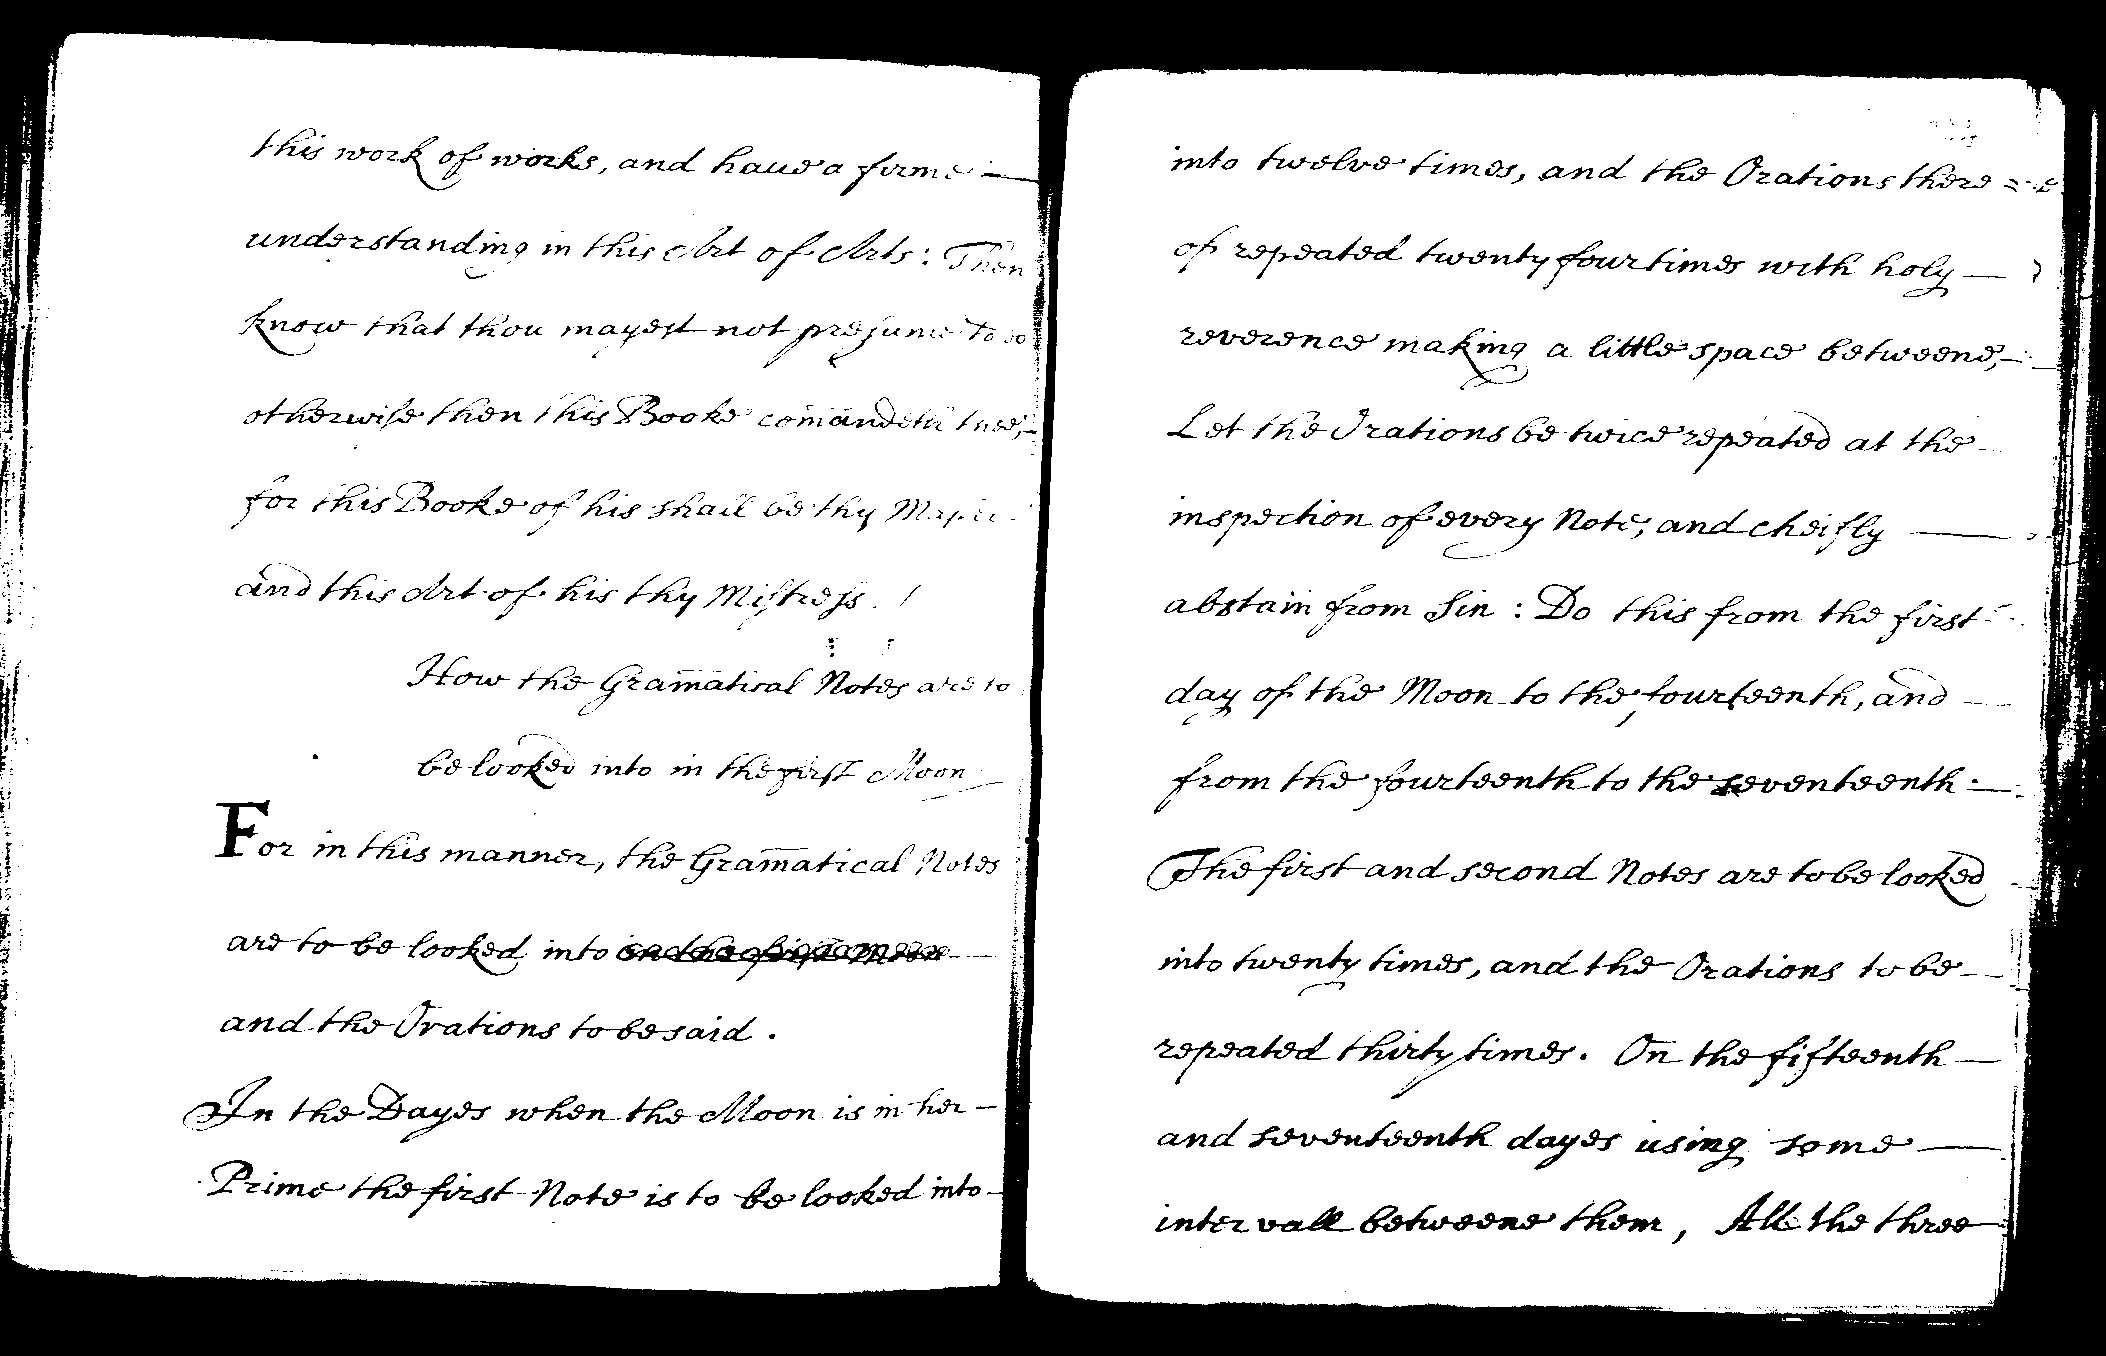 this work of works, and haue a firme —
understanding in this Art of Arts: Then
know that thou mayest not presume to do
otherwise then this Booke com̄andeth thee,
for this Booke of his shall be thy Master
and this Art of his thy Mistress. !
How the Gram̄atical Notes are to
be looked into in the first Moon
For in this manner, the Gram̄atical Notes
are to be looked into in the first Moon —
and the Orations to be said.
In the Dayes when the Moon is in her —
Prime the first Note is to be looked into —
into twelve times, and the Orations there =
of repeated twenty four times with holy —
reverence making a little space betweene, —
Let the Orations be twice repeated at the —
inspection of every Note, and cheifly —
abstain from Sin : Do this from the first
day of the Moon to the fourteenth, and —
from the fourteenth to the seventeenth. —
The first and second Notes are to be looked
into twenty times, and the Orations to be —
repeated thirty times. On the fifteenth —
and seventeenth dayes using some —
intervall betweene them, All the three